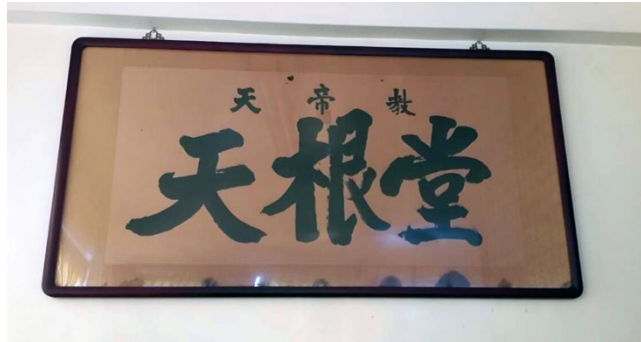 天帝教
天根堂